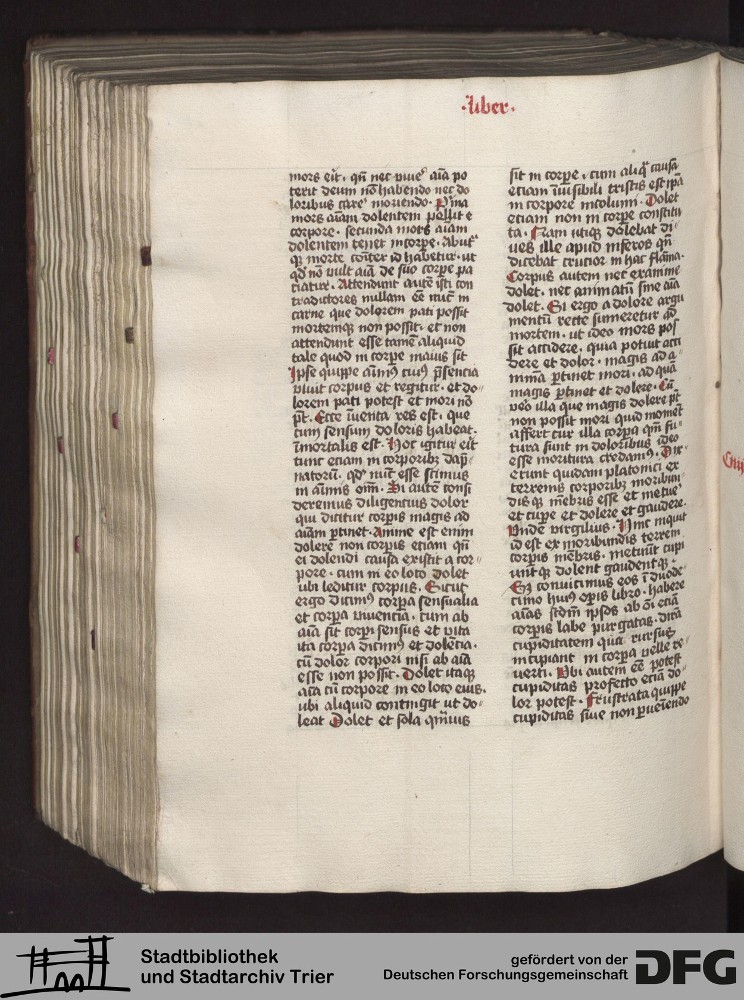 ·liber·
mors erit· qn̄ nec viuer̉ aīa po
terit deum nō habendo nec do
loribus carer̉ moriendo· Pͥma
mors aīam dolentem pellit e
corpore· secunda mors aīam
dolentem tenet in corpe· Ab ut͛
qꝫ morte cōiter id habetur· ut
qd̓ nō vult aīa de suo corpe pa
ciatur· Attendunt autē isti con
tradictores nullam eē nūc in
carne que dolorem pati possit
mortemqꝫ non possit· et non
attendunt esse tamē aliquid
tale quod in corpe maius sit
Ipse quippe aīmꝰ cuiꝰ p̄sencia
viuit corpus et regitur· et do-
lorem pati potest et mori nō
pt̄· Ecce īuenta res est· que
cum sensum doloris habeat·
īmortalis est· Hoc igitur erit
tunc etiam in corporibꝫ dāp-
natorū· qd̓ nūc esse scimus
in aīmis oīm̄· Si autē consi
deremus diligencius dolor
qui dicitur corpis magis ad
aīam ꝑtinet· Anime est enim
dolere non corpis etiam qn̄
ei dolendi causa existit a cor-
pore· cum in eo loco dolet
ubi leditur corpus· Sicut
ergo dicimꝰ corpa sensualia
et corpa viuencia· cum ab
aīa sit corpi sensus et vita
ita corpa dicimꝰ et dolēcia·
cū dolor corpori nisi ab aīa
esse non possit· Dolet itaqꝫ
aīa cū corpore in eo loco eius·
ubi aliquid contingit ut do-
leat Dolet et sola qm̄uis
sit in corpe· cum aliqͣ causa
etiam īuisibili tristis est ip̄a
in corpore incolumi· Dolet
etiam non in corpe constitu
ta· Nam utiqꝫ dolebat di-
ues ille apud inferos qn̄
dicebat crucior in hac flāma·
Corpus autem nec exanime
dolet· nec animatū sine aīa
dolet· Si ergo a dolore argu
mentū recte sumeretur ad
mortem· ut ideo mors pos
sit accidere· quia potuit acci
dere et dolor· magis ad a-
nimā ꝑtinet mori· ad quā
magis ꝑtinet et dolere· Cū
vēo illa que magis dolere pt̄
non possit mori quid momēt
affert cur illa corpa qm̄ fu-
tura sunt in doloribus ideo
esse moritura credamꝰ· Dix-
erunt quidam platonici ex
terrenis corporibꝫ moribun
dis qꝫ mēbris esse et metue͛
et cupe et dolere et gaudere·
Vnde virgilius· Hinc inquit
id est ex moribundis terreni
corpis mēbris· metuūt cupi
untqꝫ dolent gaudentqꝫ·
Sꝫ conuicimus eos ī duode-
cimo huiꝰ opis libro· habere
aīas scdm̄ ip̄sos ab oī eciā
corpis labe purgatas· dirā
cupiditatem qua rursus
incipiant in corpa velle re-
uerti· Vbi autem eē potest
cupiditas profecto eciā do-
lor potest· Frustrata quippe
cupiditas siue non ꝑueniendo
Stadtbibliothek
und Stadtarchiv Trier
gefördert von der
Deutschen Forschungsgemeinschaft
DFG